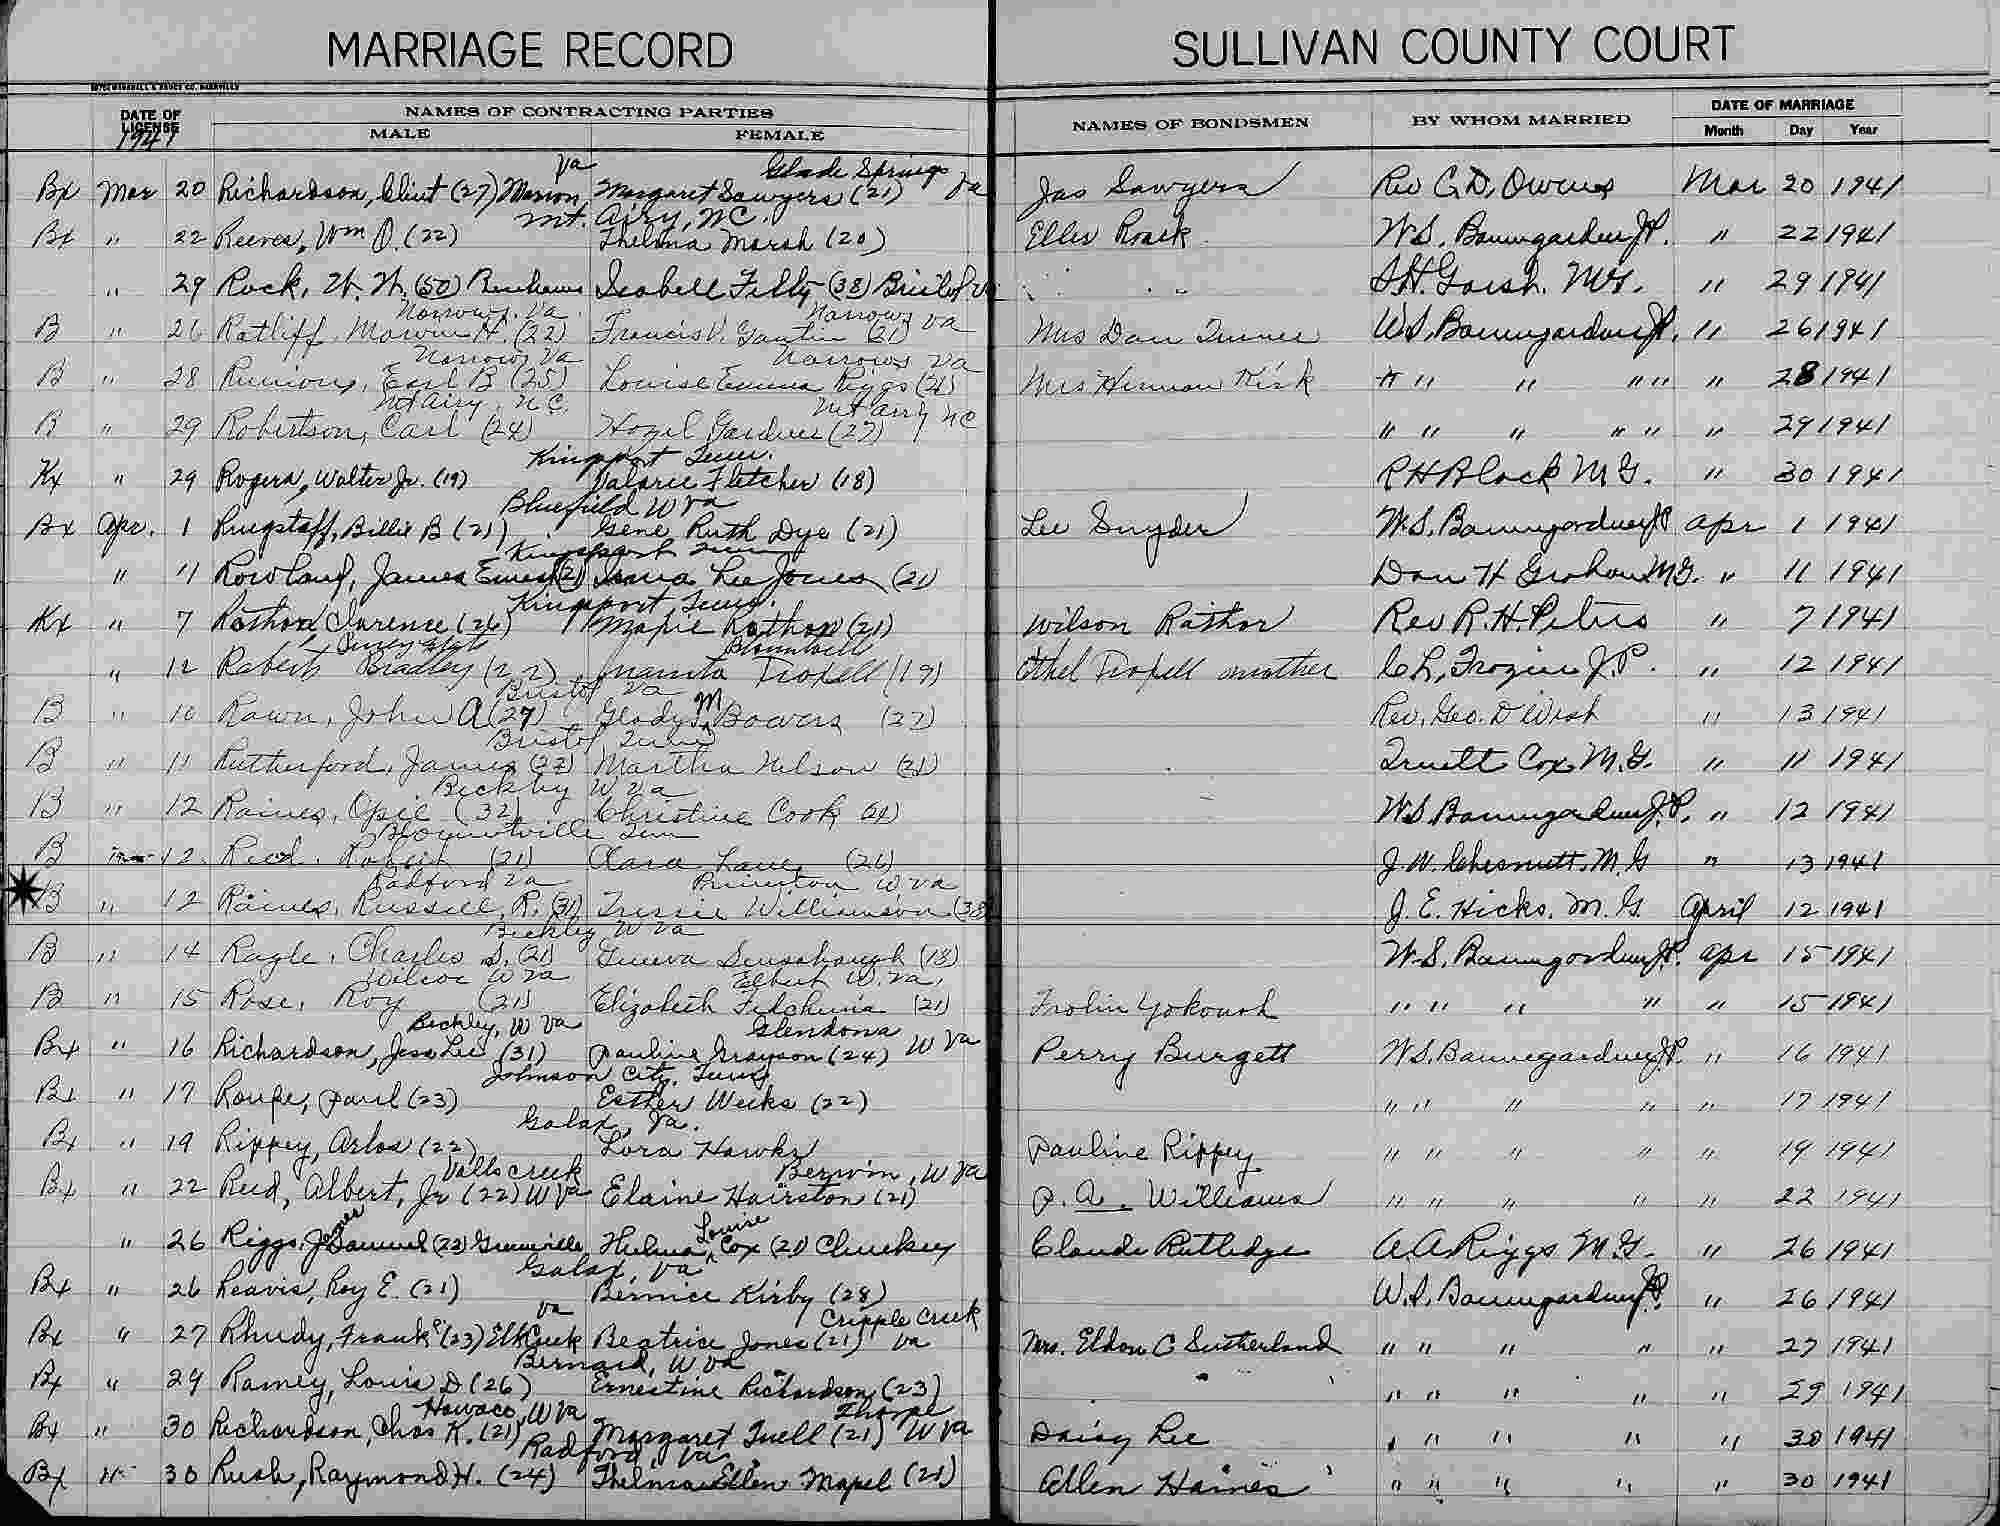 MARRIAGE RECORD SULLIVAN COUNTY COURT
DATE OF LICENSE NAMES OF CONTRACTING PARTIES NAMES OF BONDSMEN BY WHOM MARRIED DATE OF MARRIAGE
1941 MALE FEMALE Month Day Year
Va Glade Springs
Bx Mar 20 Richardson, Clint (27) Marion, Margaret Sawyers (21) Va Jas Sawyers Rev C. D. Owens Mar 20 1941
Mt. Airy, NC.
Bx " 22 Reeves, Wm O. (22) Thelma Marsh (20) Ellis Roark W.S. Baumgardner J.P. " 22 1941
" 29 Rock, (50) Isabell (38) Bristol Va M.G. " 29 1941
Narrows, Va. Narrows Va
B " 26 Ratliff, (22) Francis V. (21) Mrs Dan Turner W.S. Baumgardner J.P. " 26 1941
Narrows Va Narrows Va
B " 28 Runions, Earl B (25) Louise Emma Riggs (21) Mrs Herman Kirk " " " " " " 28 1941
Mt Airy, N.C. Mt Airy NC
B " 29 Robertson, Carl (24) Hazel Gardner (27) " " " " " " 29 1941
Kingsport Tenn.
Kx " 29 Rogers, Walter Jr. (19) Valarie Fletcher (18) R H Black M G. " 30 1941
Bluefield W Va
Bx Apr. 1 Ringstaff, Billie B (21) Gene Ruth Dye (21) Lee Snyder W.S. Baumgardner J.P. Apr 1 1941
Kingsport Tenn
" 11 Rowland, James Ernest (21) Lee Jones (21) Dan H Graham M.G. " 11 1941
Kingsport, Tenn.
Kx " 7 Rathon, Clarence (26) Mapie Rathon (21) Wilson Rathor Rev R. H. Peters " 7 1941
Piney Flats Blountville
" 12 Robert Bradley (22) Juanita Troxell (19) Ethel Troxell mother C. L. Frazier J.P. " 12 1941
Bristol Va
B " 10 Rawn, John A (27) Gladys M Bowers (27) Rev. Geo. D Wish " 13 1941
Bristol, Tenn
B " 11 Rutherford, James (22) Martha Nelson (21) Truett Cox M.G. " 11 1941
Beckley W Va
B " 12 Raines, Opie (32) Christine Cook W.S. Baumgardner J.P. " 12 1941
Blountville Tenn
B " 12 Reed, Robert (21) Clara Lane (26) J. W. Chesnutt, M. G " 13 1941
Radford Va Princeton W. Va
B " 12 Raines, Russell, R. (31) Tressie Williamson (38) J. E. Hicks, M. G. April 12 1941
Beckley W Va
B " 14 Ragle, Charles S. (21) Geneva (18) W.S. Baumgardner J.P. Apr 15 1941
Wilcoe W Va Elbert W. Va.
B " 15 Rose, Roy (21) Elizabeth (21) Frolin Yokouoh " " " " " 15 1941
Beckley, W Va Glendona
Bx " 16 Richardson, Jess Lee (31) Pauline Grayson (24) W Va Perry Burgett W.S. Baumgardner J.P. " 16 1941
Johnson City, Tenn
Bx " 17 Roupe, Paul (23) Esther Weeks (22) " " " " " 17 1941
Galax, Va.
Bx " 19 Rippey, Arlos (22) Lora Hawks Pauline Rippey " " " " " 19 1941
Valls creek Berwin, W Va
Bx " 22 Reed, Albert, Jr (22) W Va Elaine Hairston (21) P. A. Williams " " " " " 22 1941
James Louise
" 26 Riggs, Samuel (22) Greenville Cox (21) Chuckey Claude Rutledge A. A Riggs M.G. " 26 1941
Galax, Va
Bx " 26 Reavis, Roy E. (21) Bernice Kirby (28) W.S. Baumgardner J.P. " 26 1941
Va Cripple Creek
Bx " 27 Rhudy, Frank (23) Elk Creek Beatrice Jones (21) Va Mrs. Eldon C Sutherland " " " " " 27 1941
Bernard, W Va
Bx " 29 Ramey, Louis D (26) Ernestine Richardson (23) " " " " " 29 1941
Havaco, W Va Thorpe
Bx " 30 Richardson, Chas K. (21) Margaret Tuell (21) W Va Daisy Lee " " " " " 30 1941
Radford, Va.
Bx " 30 Rush, Raymond H. (24) Thelma Ellen Mapel (21) Allen Haines " " " " " 30 1941